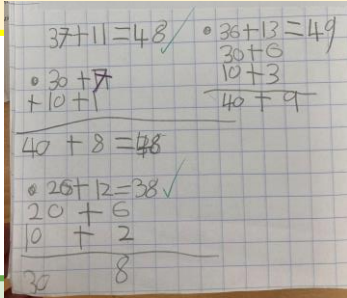 37+11=48 ✓
• 30+7
+10+1
40 + 8 =48
• 26+12=38 ✓
20 + 6
10 + 2
30 8
• 36+13=49
30+6
10+3
40 + 9